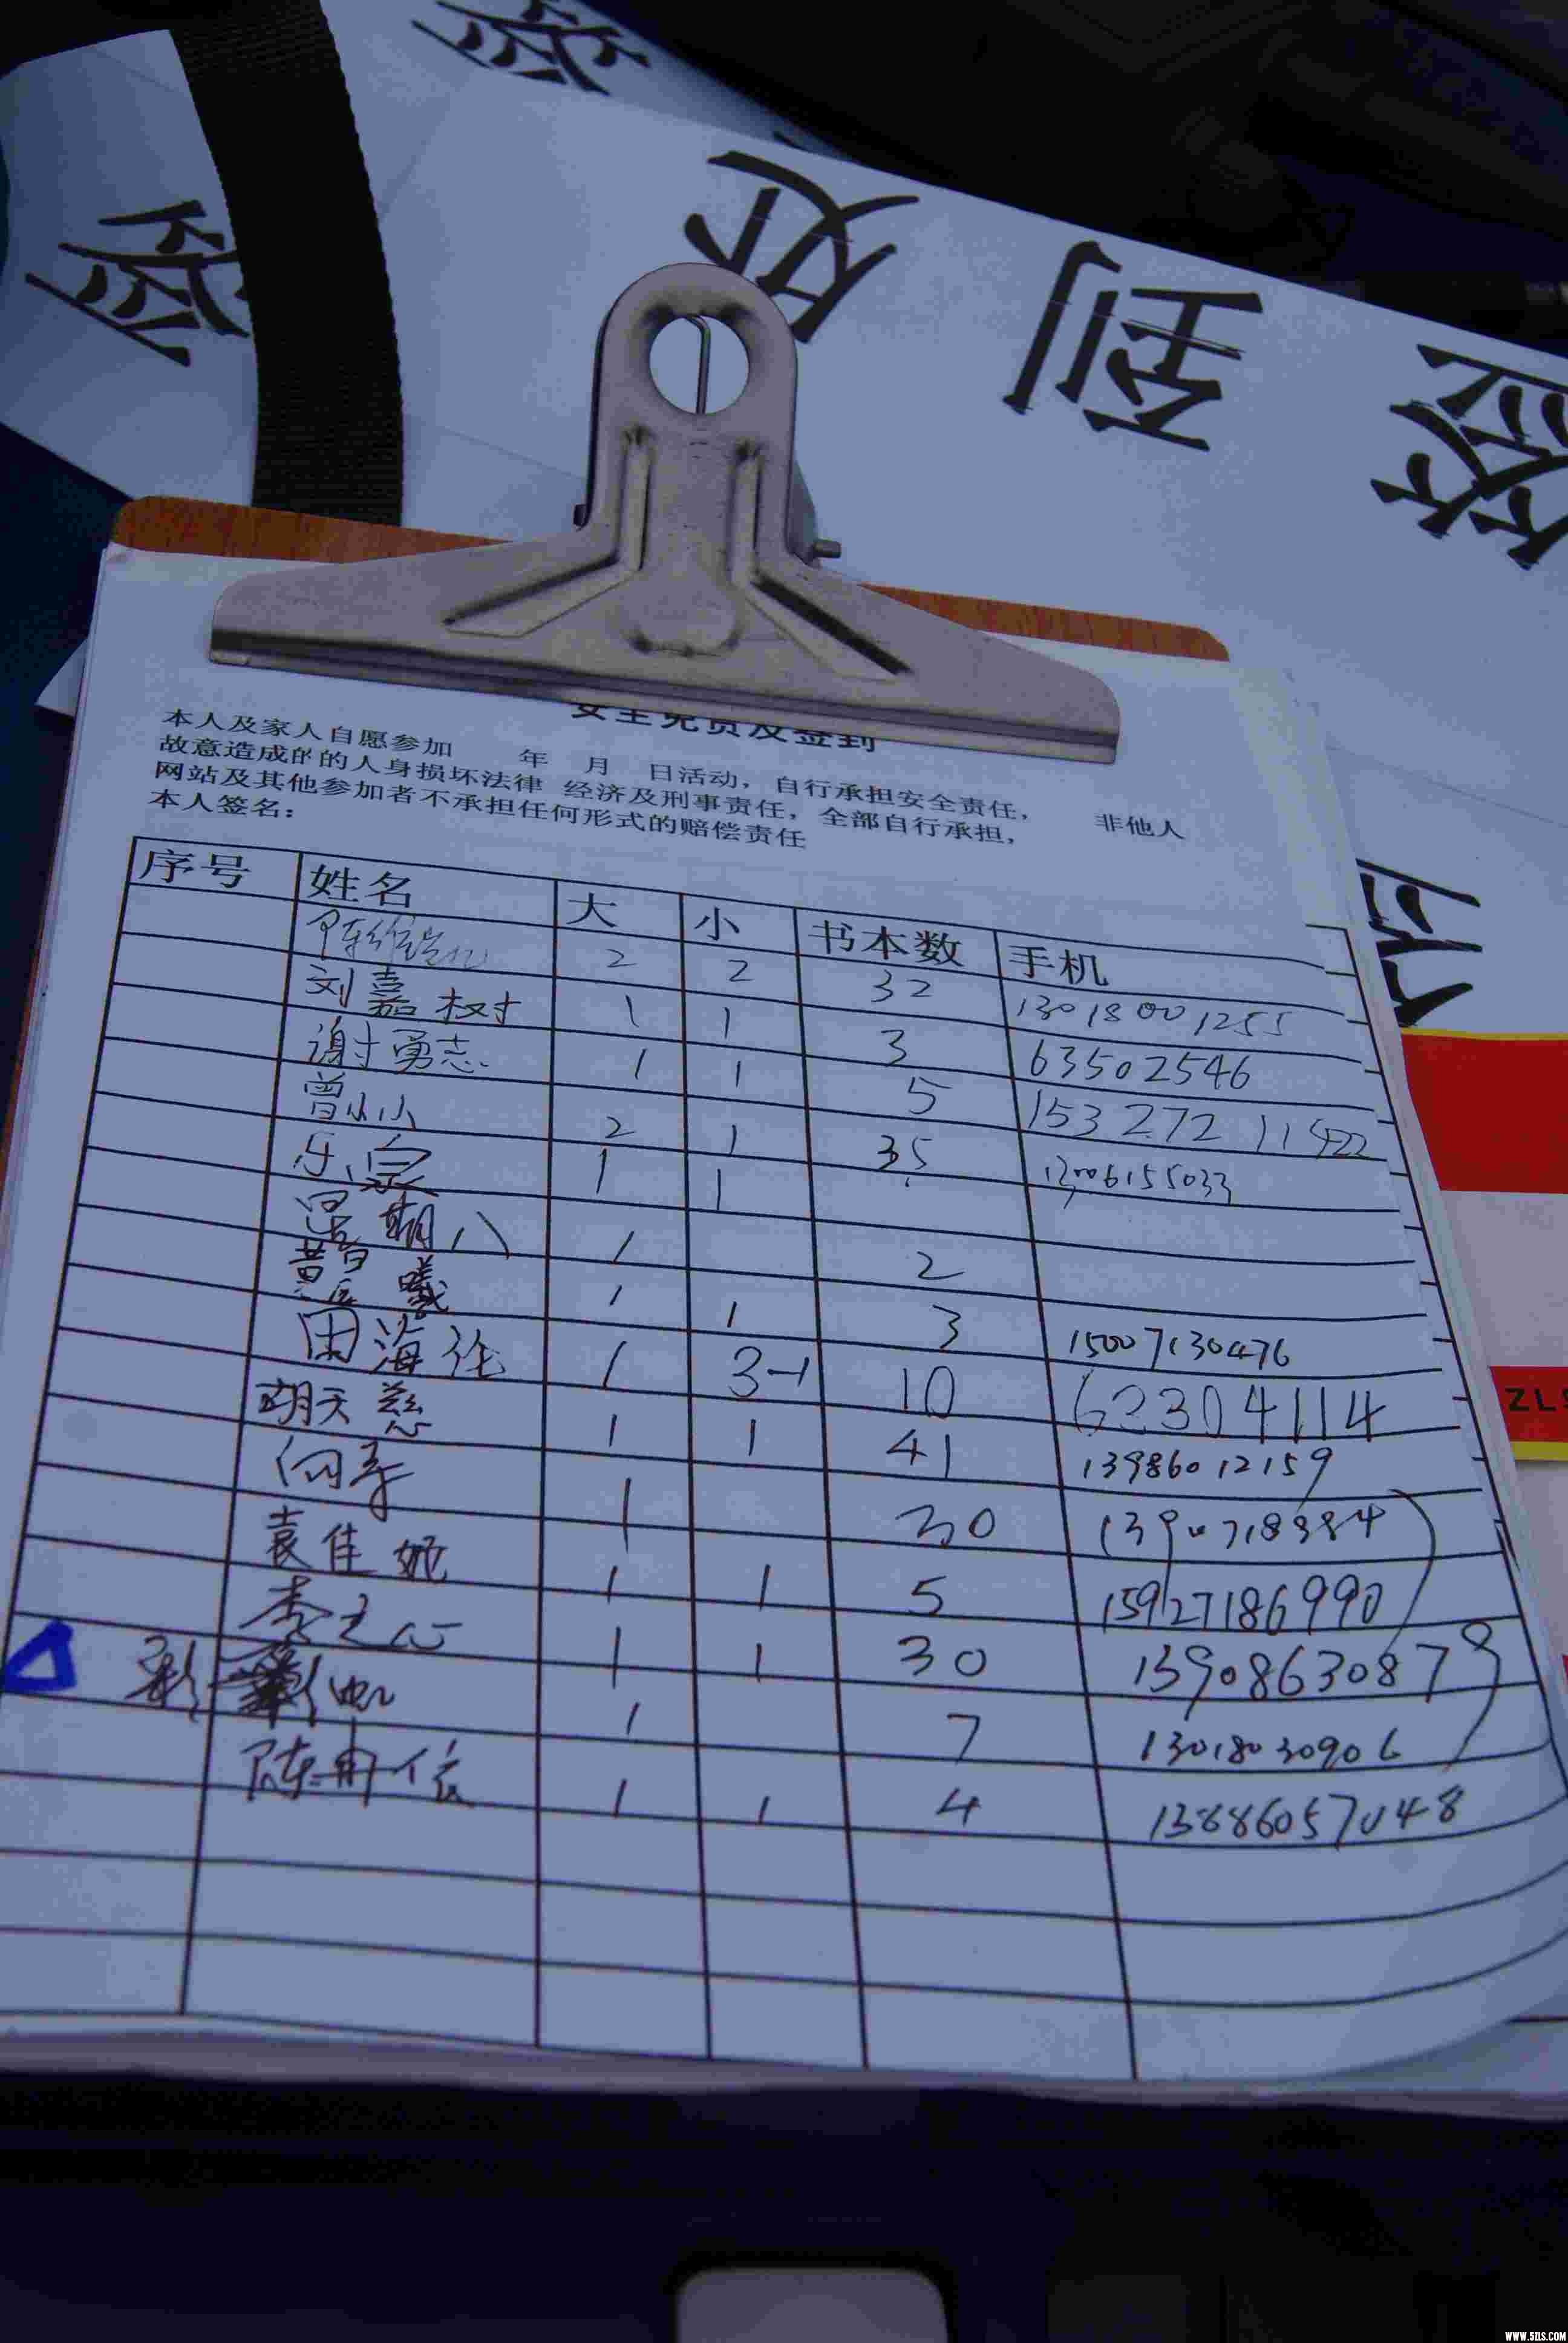 签
处
到
签
签
安全免责及签到
本人及家人自愿参加 年 月 日活动，自行承担安全责任， 非他人
故意造成的的人身损坏法律 经济及刑事责任，全部自行承担，
网站及其他参加者不承担任何形式的赔偿责任
本人签名：
序号 姓名 大 小 书本数 手机
2 2 32 13018001255
刘嘉树 1 1 3 63502546
谢勇志 1 1 5 153272
曾小小 2 1 35 13006155033
乐 1 1
星期八 1 2
曦 1 1 3 15007130476
田海伦 1 3-1 10 62304114
胡天慈 1 1 41 13986012159
向 1 30
袁佳妮 1 1 5 15927186990
李之心 1 1 30 13908630879
彭 帆 1 7 13018030906
陈冉依 1 1 4 13886057048
ZLS
WWW.5ZLS.COM